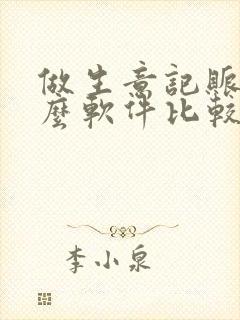 做生意記賬
麼軟件比較
李小泉